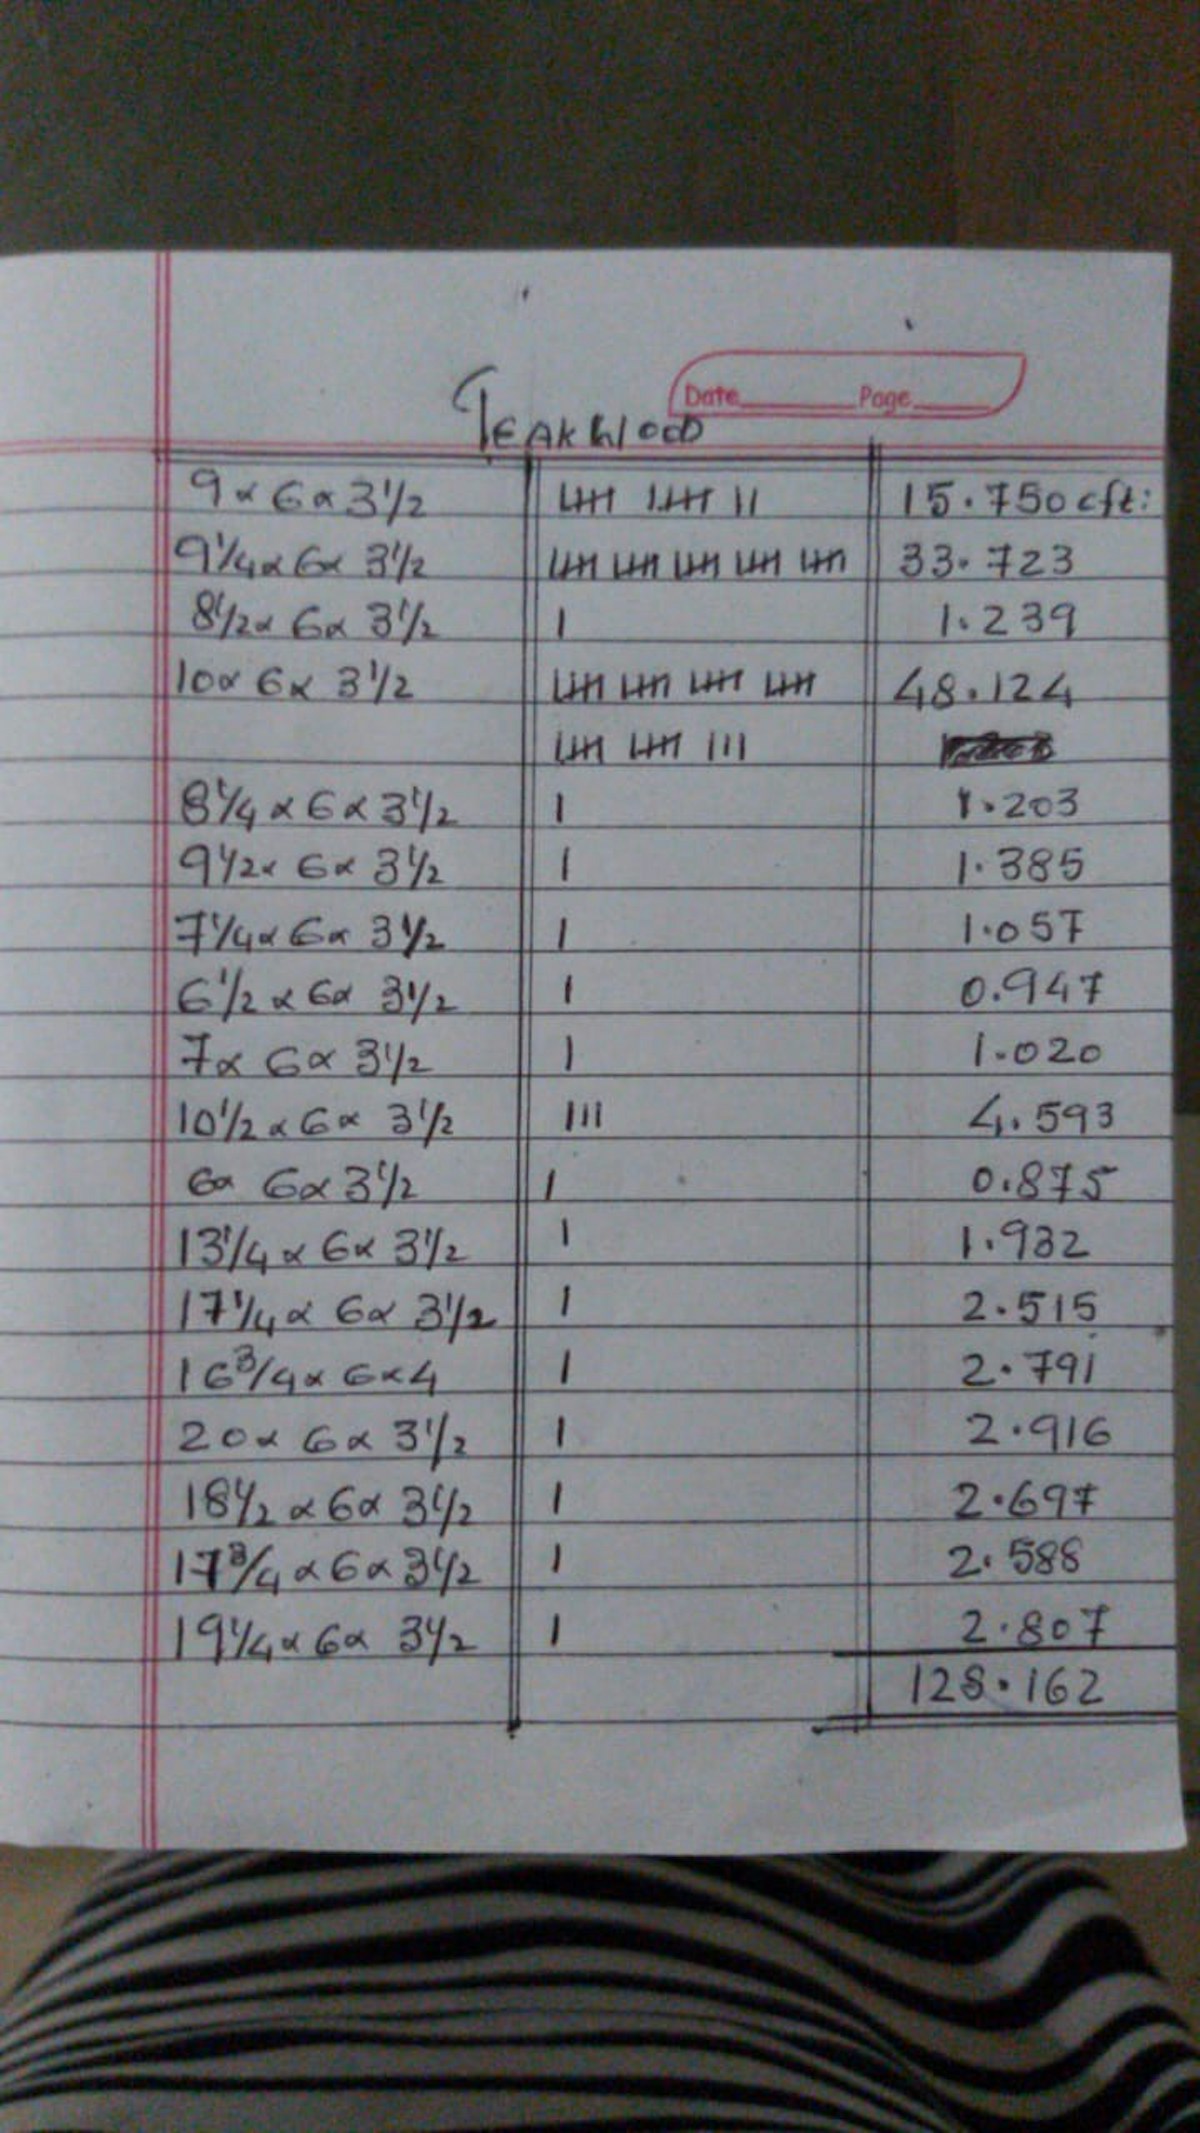 Date Page
TEAKWOOD
9 x 6 x 3 1/2 |||| |||| || 15.750 cft:
9 1/4 x 6 x 3 1/2 |||| |||| |||| |||| |||| 33.723
8 1/2 x 6 x 3 1/2 | 1.239
10 x 6 x 3 1/2 |||| |||| |||| |||| 48.124
|||| |||| |||
8 1/4 x 6 x 3 1/2 | 1.203
9 1/2 x 6 x 3 1/2 | 1.385
7 1/4 x 6 x 3 1/2 | 1.057
6 1/2 x 6 x 3 1/2 | 0.947
7 x 6 x 3 1/2 | 1.020
10 1/2 x 6 x 3 1/2 ||| 4.593
6 x 6 x 3 1/2 | 0.875
13 1/4 x 6 x 3 1/2 | 1.932
17 1/4 x 6 x 3 1/2 | 2.515
16 3/4 x 6 x 4 | 2.791
20 x 6 x 3 1/2 | 2.916
18 1/2 x 6 x 3 1/2 | 2.697
17 3/4 x 6 x 3 1/2 | 2.588
19 1/4 x 6 x 3 1/2 | 2.807
128.162